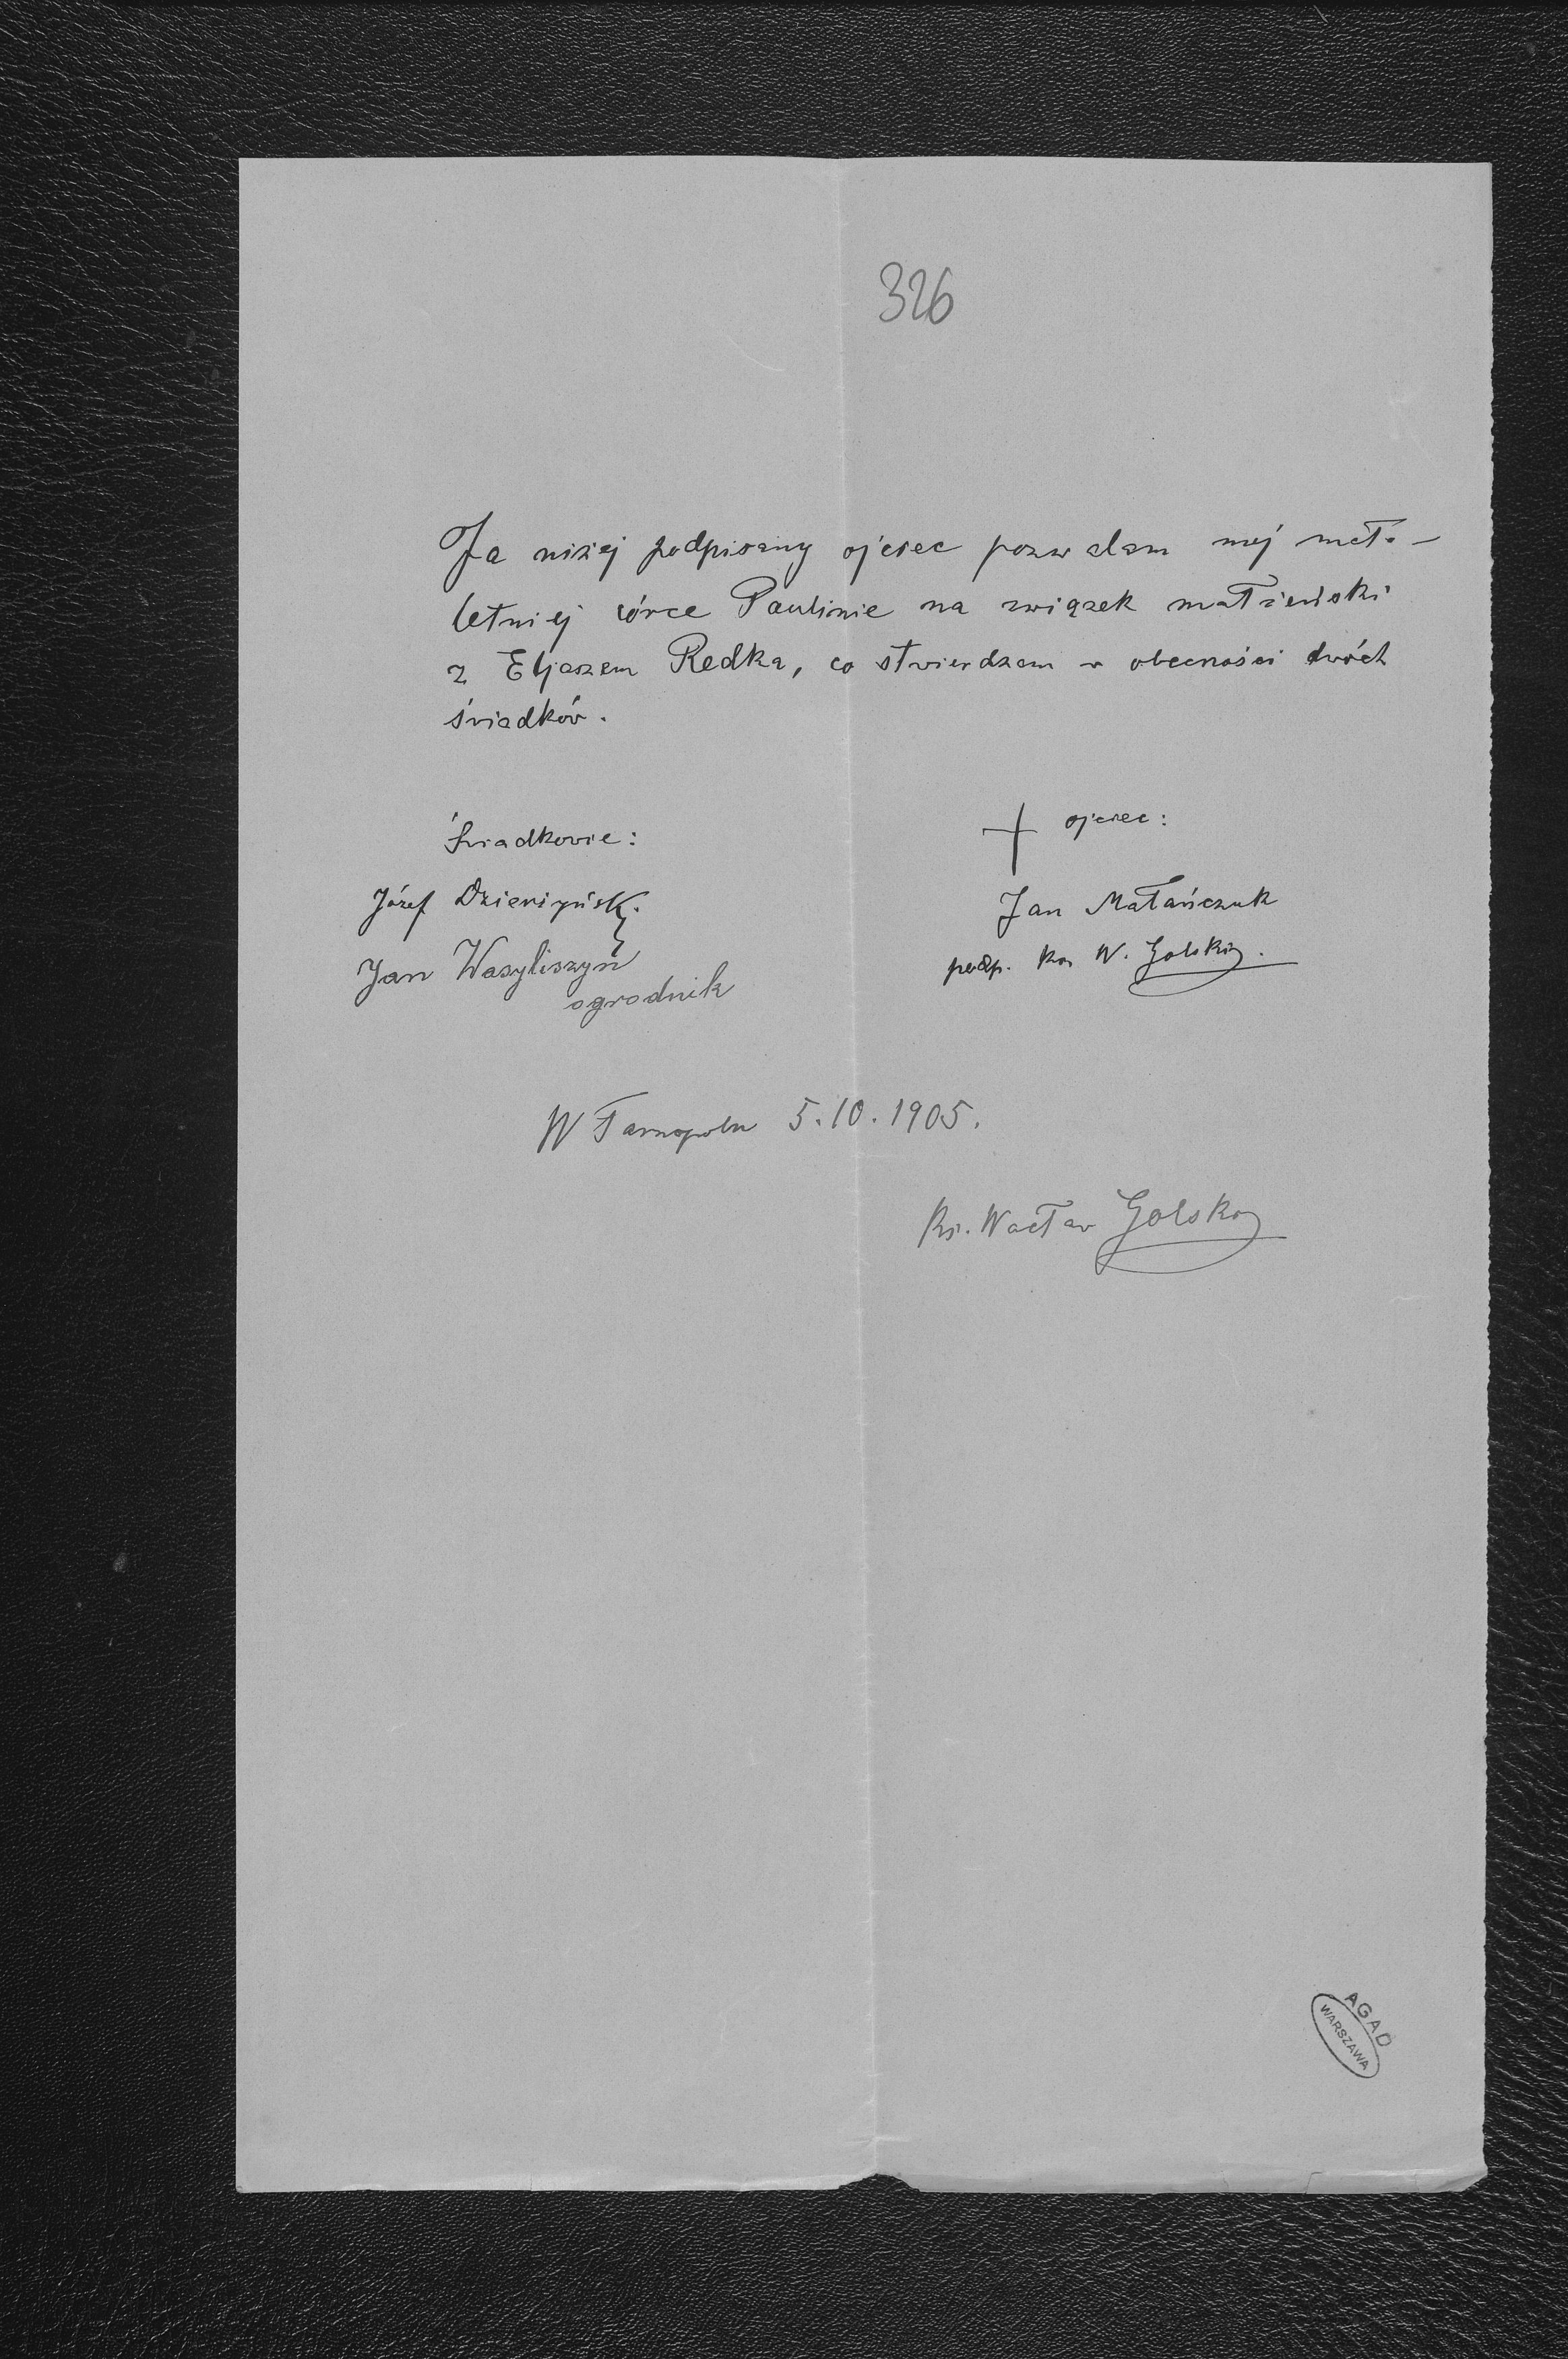 326
Ja niżej podpisany ojciec pozwalam mej mało-
letniej córce Paulinie na związek małżeński
z Eljaszem Redka, co stwierdzam w obecności dwóch
świadków.
Świadkowie:
+ ojciec:
Józef Dzierżyński
Jan Małańczuk
Jan Wasyliszyn
podp. ks W. Golski.
ogrodnik
W Tarnopolu 5.10.1905.
Ks. Wacław Golski
AGAD
WARSZAWA